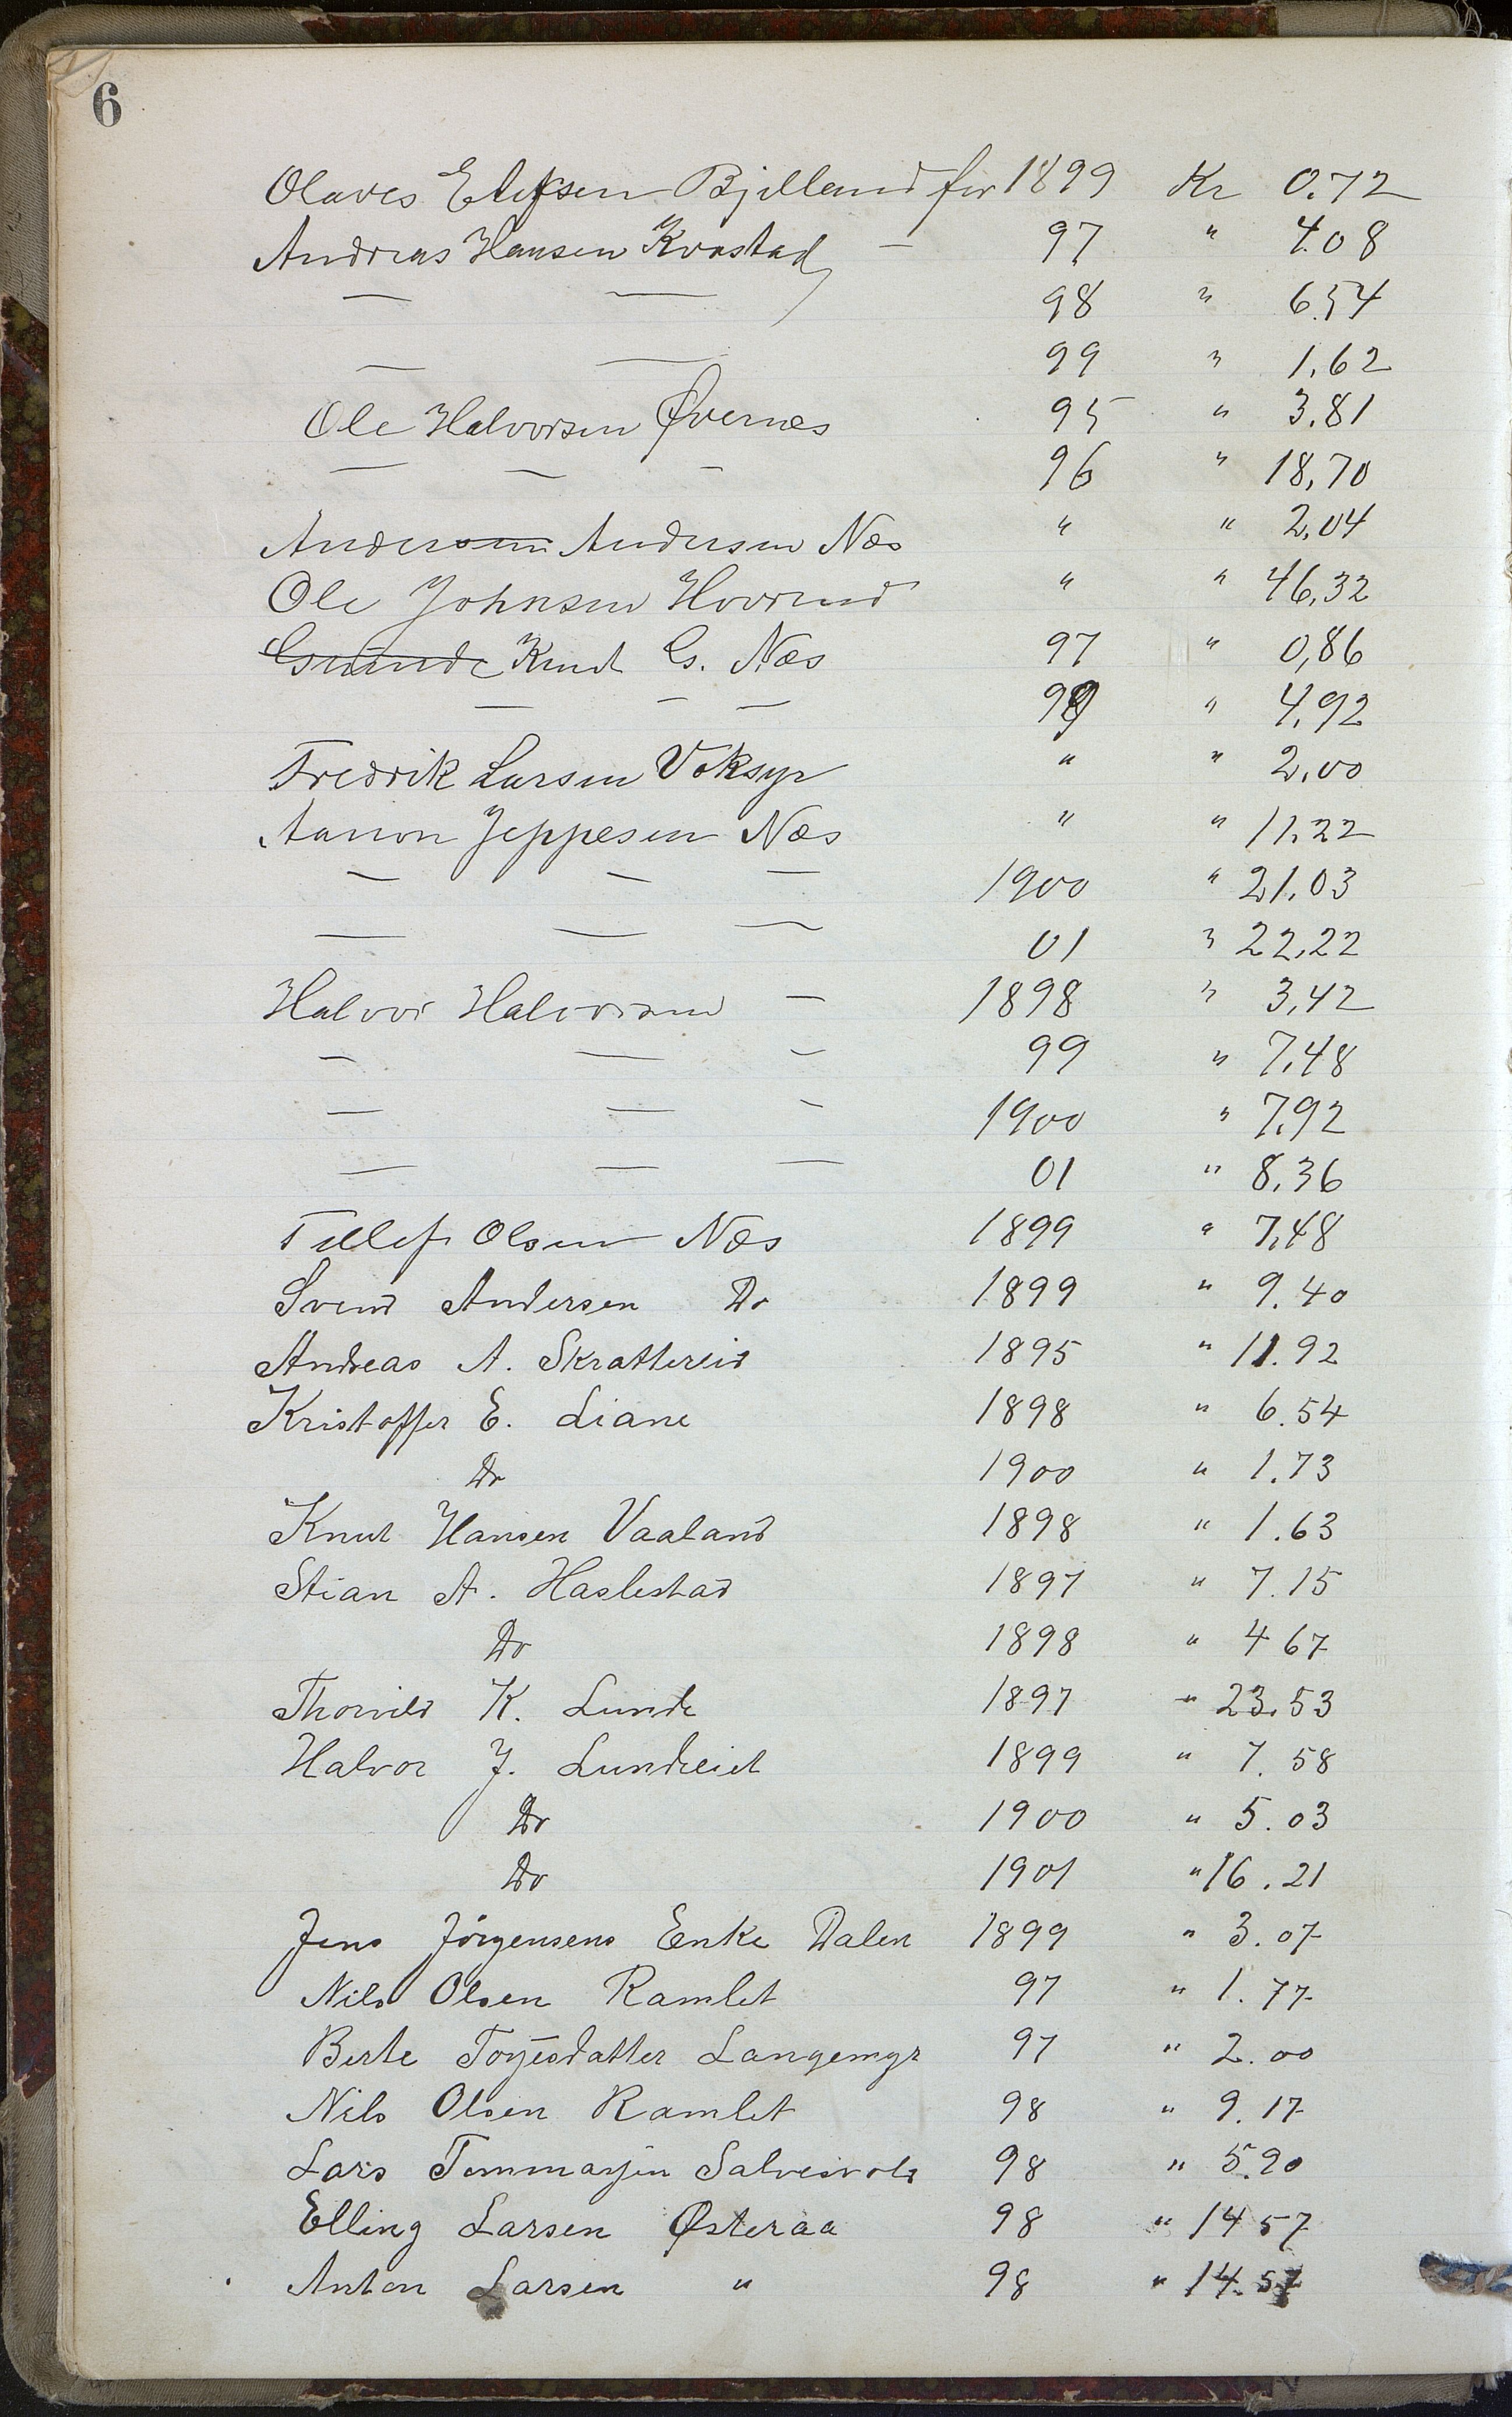 6
Olaves Elefsen Bjelland for 1899 Kr 0.72
Andreas Hansen Kvastad — 97 " 4.08
— — 98 " 6.54
— — 99 " 1,62
Ole Halvorsen Øvernes 95 " 3.81
— — — 96 " 18,70
Andersen Andersen Næs " " 2,04
Ole Johnsen Hovrud " " 46,32
Gunde Knud G. Næs 97 " 0,86
— — — 99 " 4,92
Fredrik Larsen Voksyr " " 2,00
Aanon Jeppesen Næs " " 11,22
— — — 1900 " 21,03
— — — 01 " 22,22
Halvor Halvorsen — 1898 " 3,42
— — — 99 " 7,48
— — — 1900 " 7,92
— — — 01 " 8,36
Tellef Olsen Næs 1899 " 7,48
Svend Andersen Do 1899 " 9.40
Andreas A. Skrattereid 1895 " 11.92
Kristoffer E. Liane 1898 " 6.54
Do 1900 " 1.73
Knut Hansen Vaaland 1898 " 1.63
Stian A. Haslestad 1897 " 7.15
Do 1898 " 4 67
Thorvild K. Lunde 1897 " 23.53
Halvor J. Lundeeiet 1899 " 7.58
Do 1900 " 5.03
Do 1901 " 16.21
Jens Jörgensens Enke Dalen 1899 " 3.07
Nils Olsen Ramlet 97 " 1.77
Berte Tojesdatter Langemyr 97 " 2.00
Nils Olsen Ramlet 98 " 9.17
Lars Tommasjen Salvesvold 98 " 5.90
Elling Larsen Østeraa 98 " 14 57
Anton Larsen " 98 " 14.57